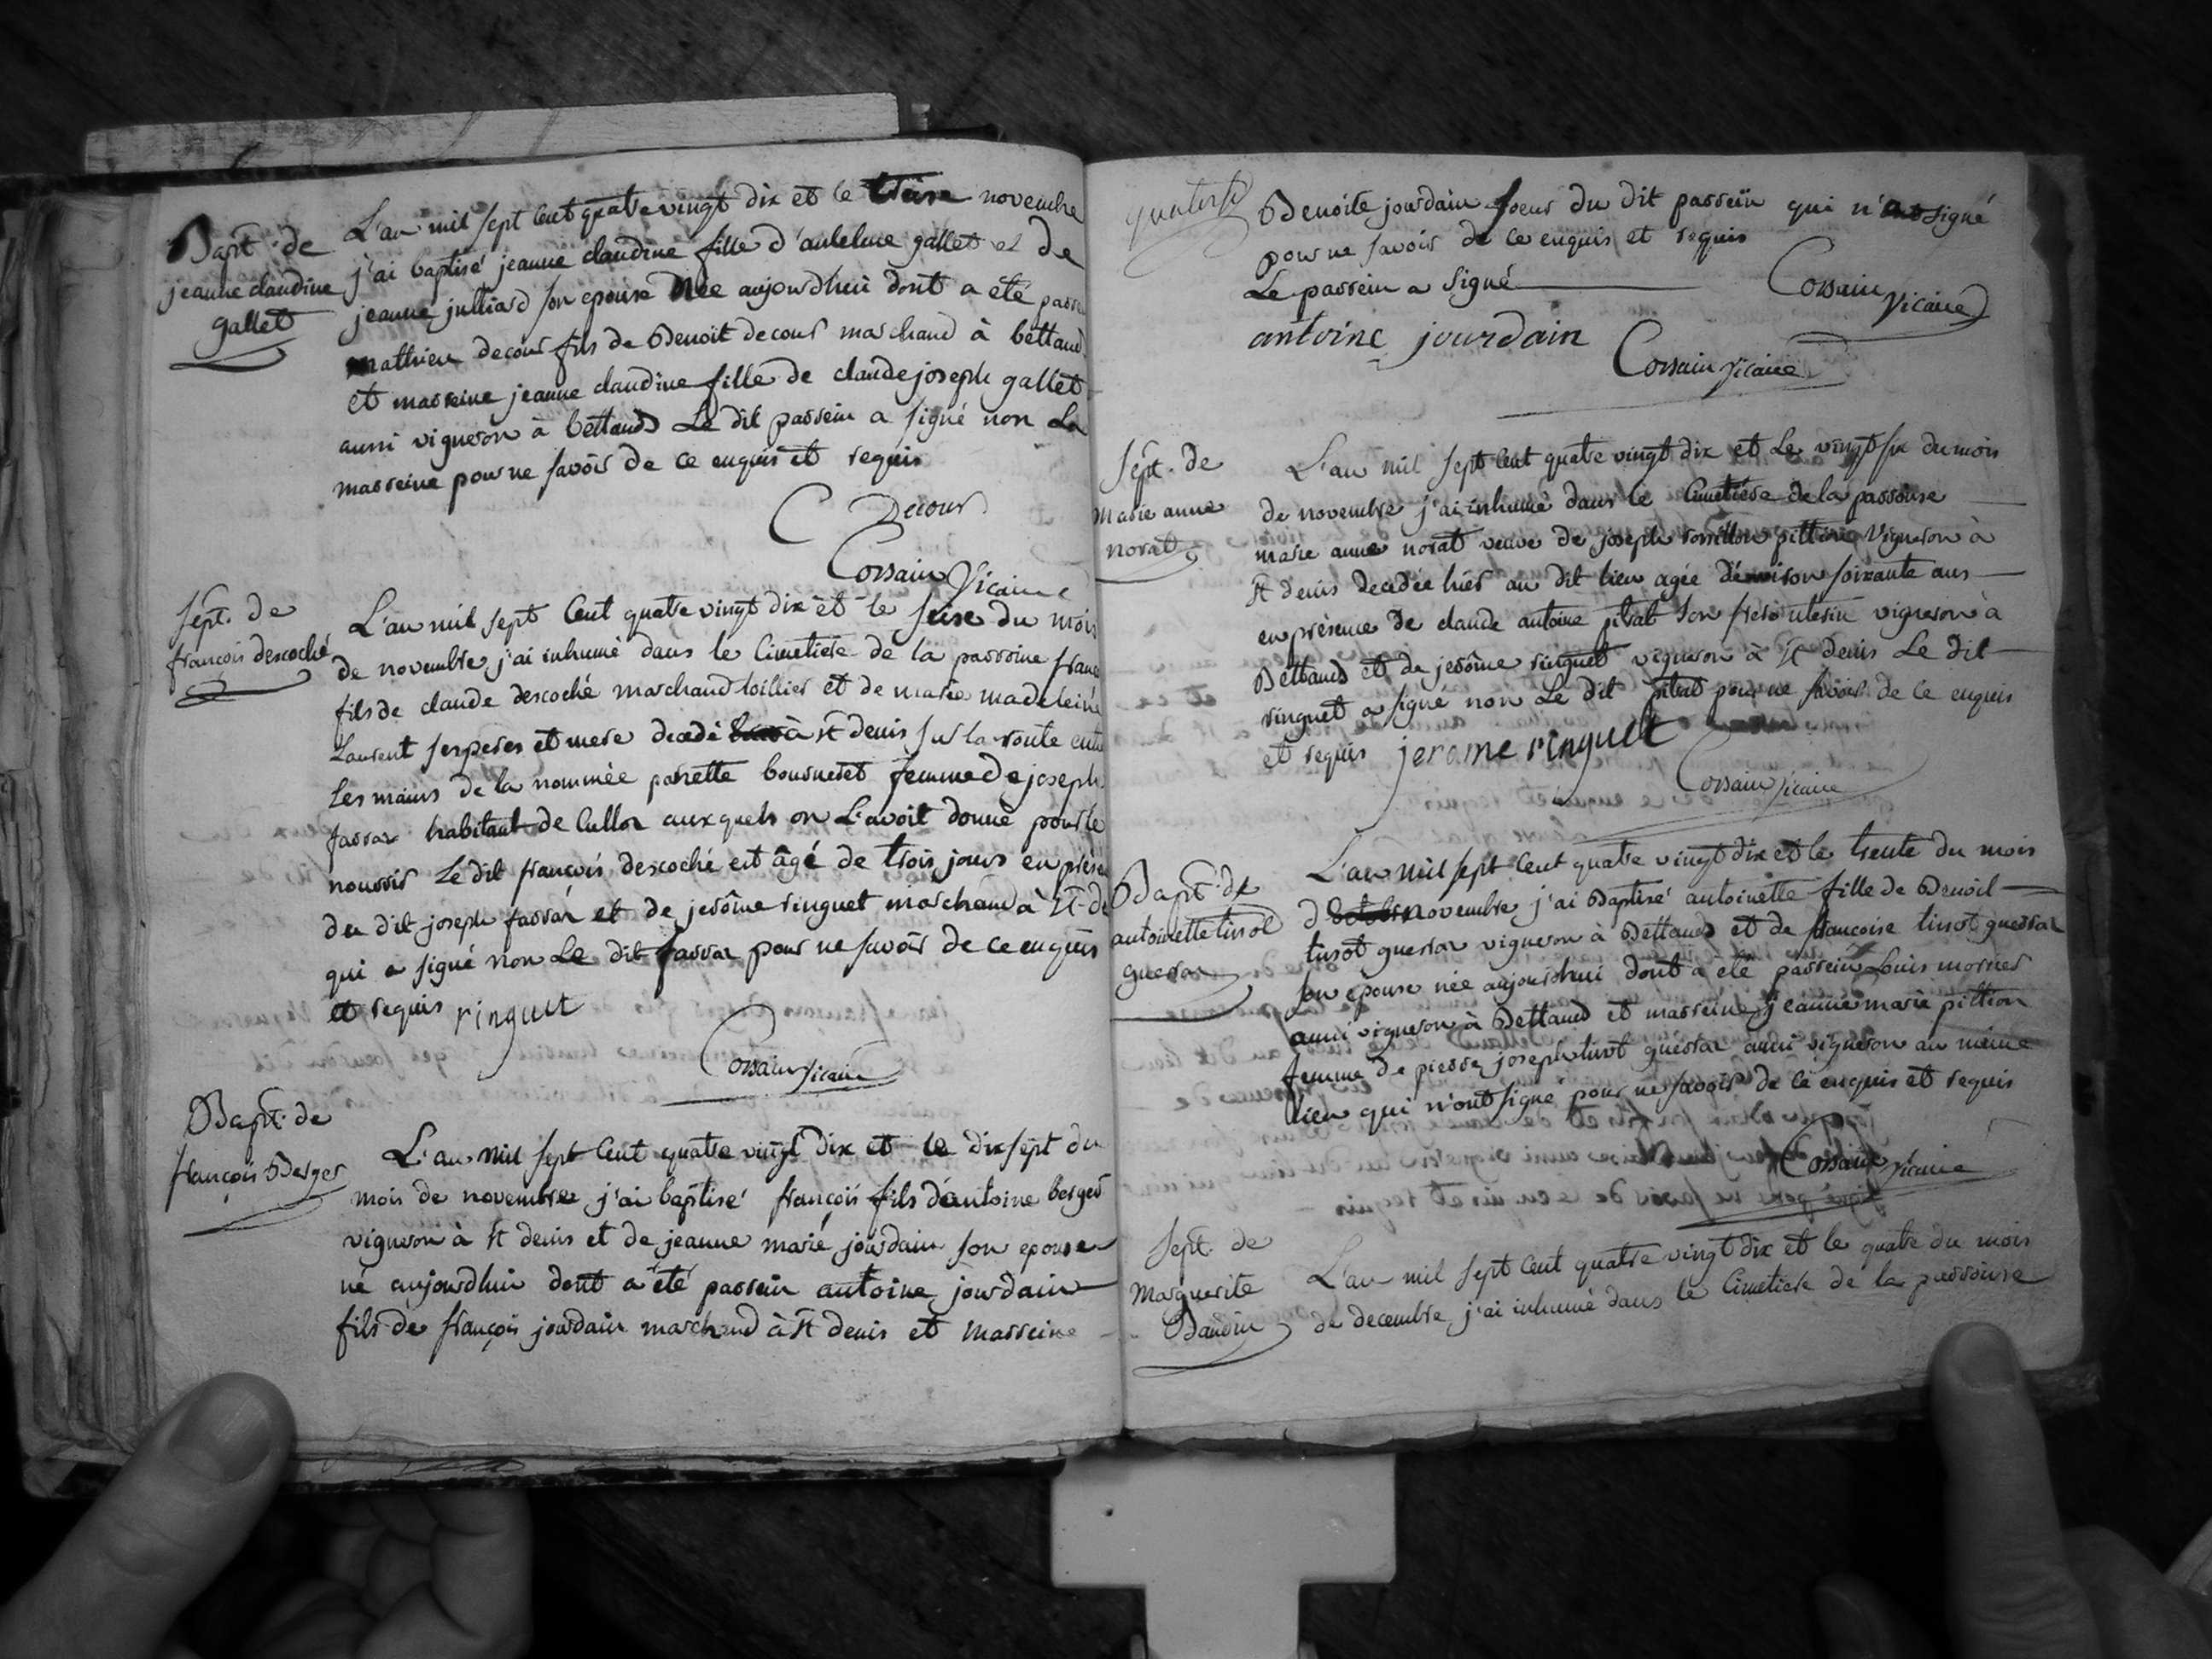 Bapt. de
jeanne claudine
gallet
L'an mil sept cent quatre vingt dix et le treise novembre
j'ai baptisé jeanne claudine fille d'antelme gallet et de
jeanne julliard son epouse née aujourdhui dont a été parr
mathieu decour fils de Benoit decour marchand à bettand
et marreine jeanne claudine fille de claude joseph gallet
aussi vigneron à bettand Le dit parrein a signé non La
marreine pour ne savoir de ce enquis et requis
Decour
Corsain Vicaire
Sept. de
françois descoché
L'an mil sept cent quatre vingt dix et le seise du mois
de novembre j'ai inhumé dans le Cimetière de la parroise franc
fils de claude descoché marchand toillier et de marie madeleine
Laurent ses peres et mere decedé à st denis sur la route entre
Les mains de la nommée pierrette bourneret femme de joseph
farrar habitant de auxquels on L'avoit donné pour le
nourrir Le dit françois descoché est âgé de trois jours en prése
du dit joseph farrar et de jerôme ringuet marchand à st de
qui a signé non Le dit farrar pour ne savoir de ce enquis
et requis ringuet
Corsain Vicaire
Bapt. de
françois Berger
L'an mil sept cent quatre vingt dix et le dix sept du
mois de novembre j'ai baptisé françois fils d'antoine berger
vigneron à st denis et de jeanne marie jourdain son epouse
né aujourdhui dont a été parrein antoine jourdain
fils de françois jourdain marchand à st denis et marreine
quatorse
Benoite jourdain soeur du dit parrein qui n'a signé
pour ne savoir de ce enquis et requis
Le parrein a signé
Corsain Vicaire
antoine jourdain
Corsain Vicaire
Sept. de
Marie anne
norat
L'an mil sept cent quatre vingt dix et Le vingt six du mois
de novembre j'ai inhumé dans le Cimetière de la parroise
marie anne norat veuve de joseph vigneron à
st denis decedée hier au dit lieu agée d'environ soixante ans
en présence de claude antoine pitrat son frere uterin vigneron à
Bettand et de jerôme ringuet vigneron à st denis Le dit
ringuet a signé non Le dit pitrat pour ne savoir de ce enquis
et requis jerome ringuet
Corsain Vicaire
Bapt. de
antoinette tissot
guerrar
L'an mil sept cent quatre vingt dix et le trente du mois
de novembre j'ai Baptisé antoinette fille de Benoit
tissot guerrar vigneron à Bettand et de françoise tissot guerrar
son epouse née aujourdhui dont a été parrein Louis morrier
aussi vigneron à Bettand et marreine jeanne marie pittion
femme de pierre joseph tissot guerrar aussi vigneron au même
lieu qui n'ont signé pour ne savoir de ce enquis et requis
Corsain Vicaire
Sept. de
Marguerite
Baudin
L'an mil sept cent quatre vingt dix et le quatre du mois
de decembre j'ai inhumé dans le Cimetière de la parroise